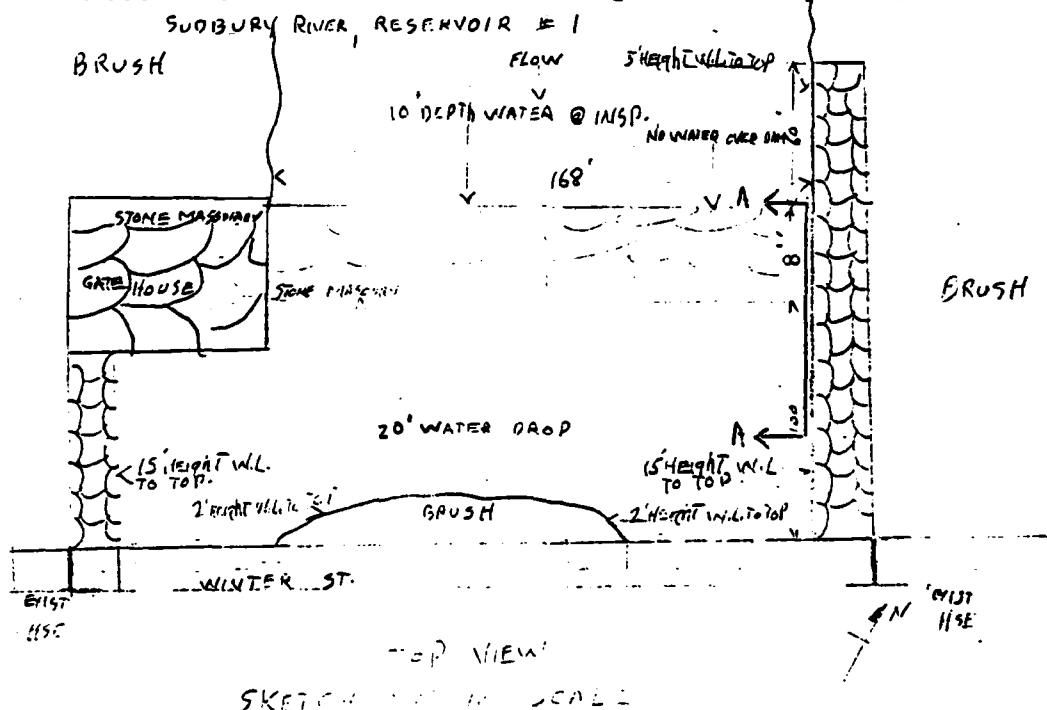 SUDBURY RIVER, RESERVOIR # 1
BRUSH
FLOW
5' HEIGHT W.L. TO TOP
10' DEPTH WATER @ INSP.
NO WATER OVER
168'
A
STONE MASONARY
GATE HOUSE
STONE
BRUSH
20' WATER DROP
A
100
15' HEIGHT W.L.
TO TOP.
15' HEIGHT W.L.
TO TOP
2' HEIGHT W.L. TO
BRUSH
2' HEIGHT W.L. TO TOP
WINTER ST.
EXIST
HSE
N
EXIST
HSE
TOP VIEW
SKETCH